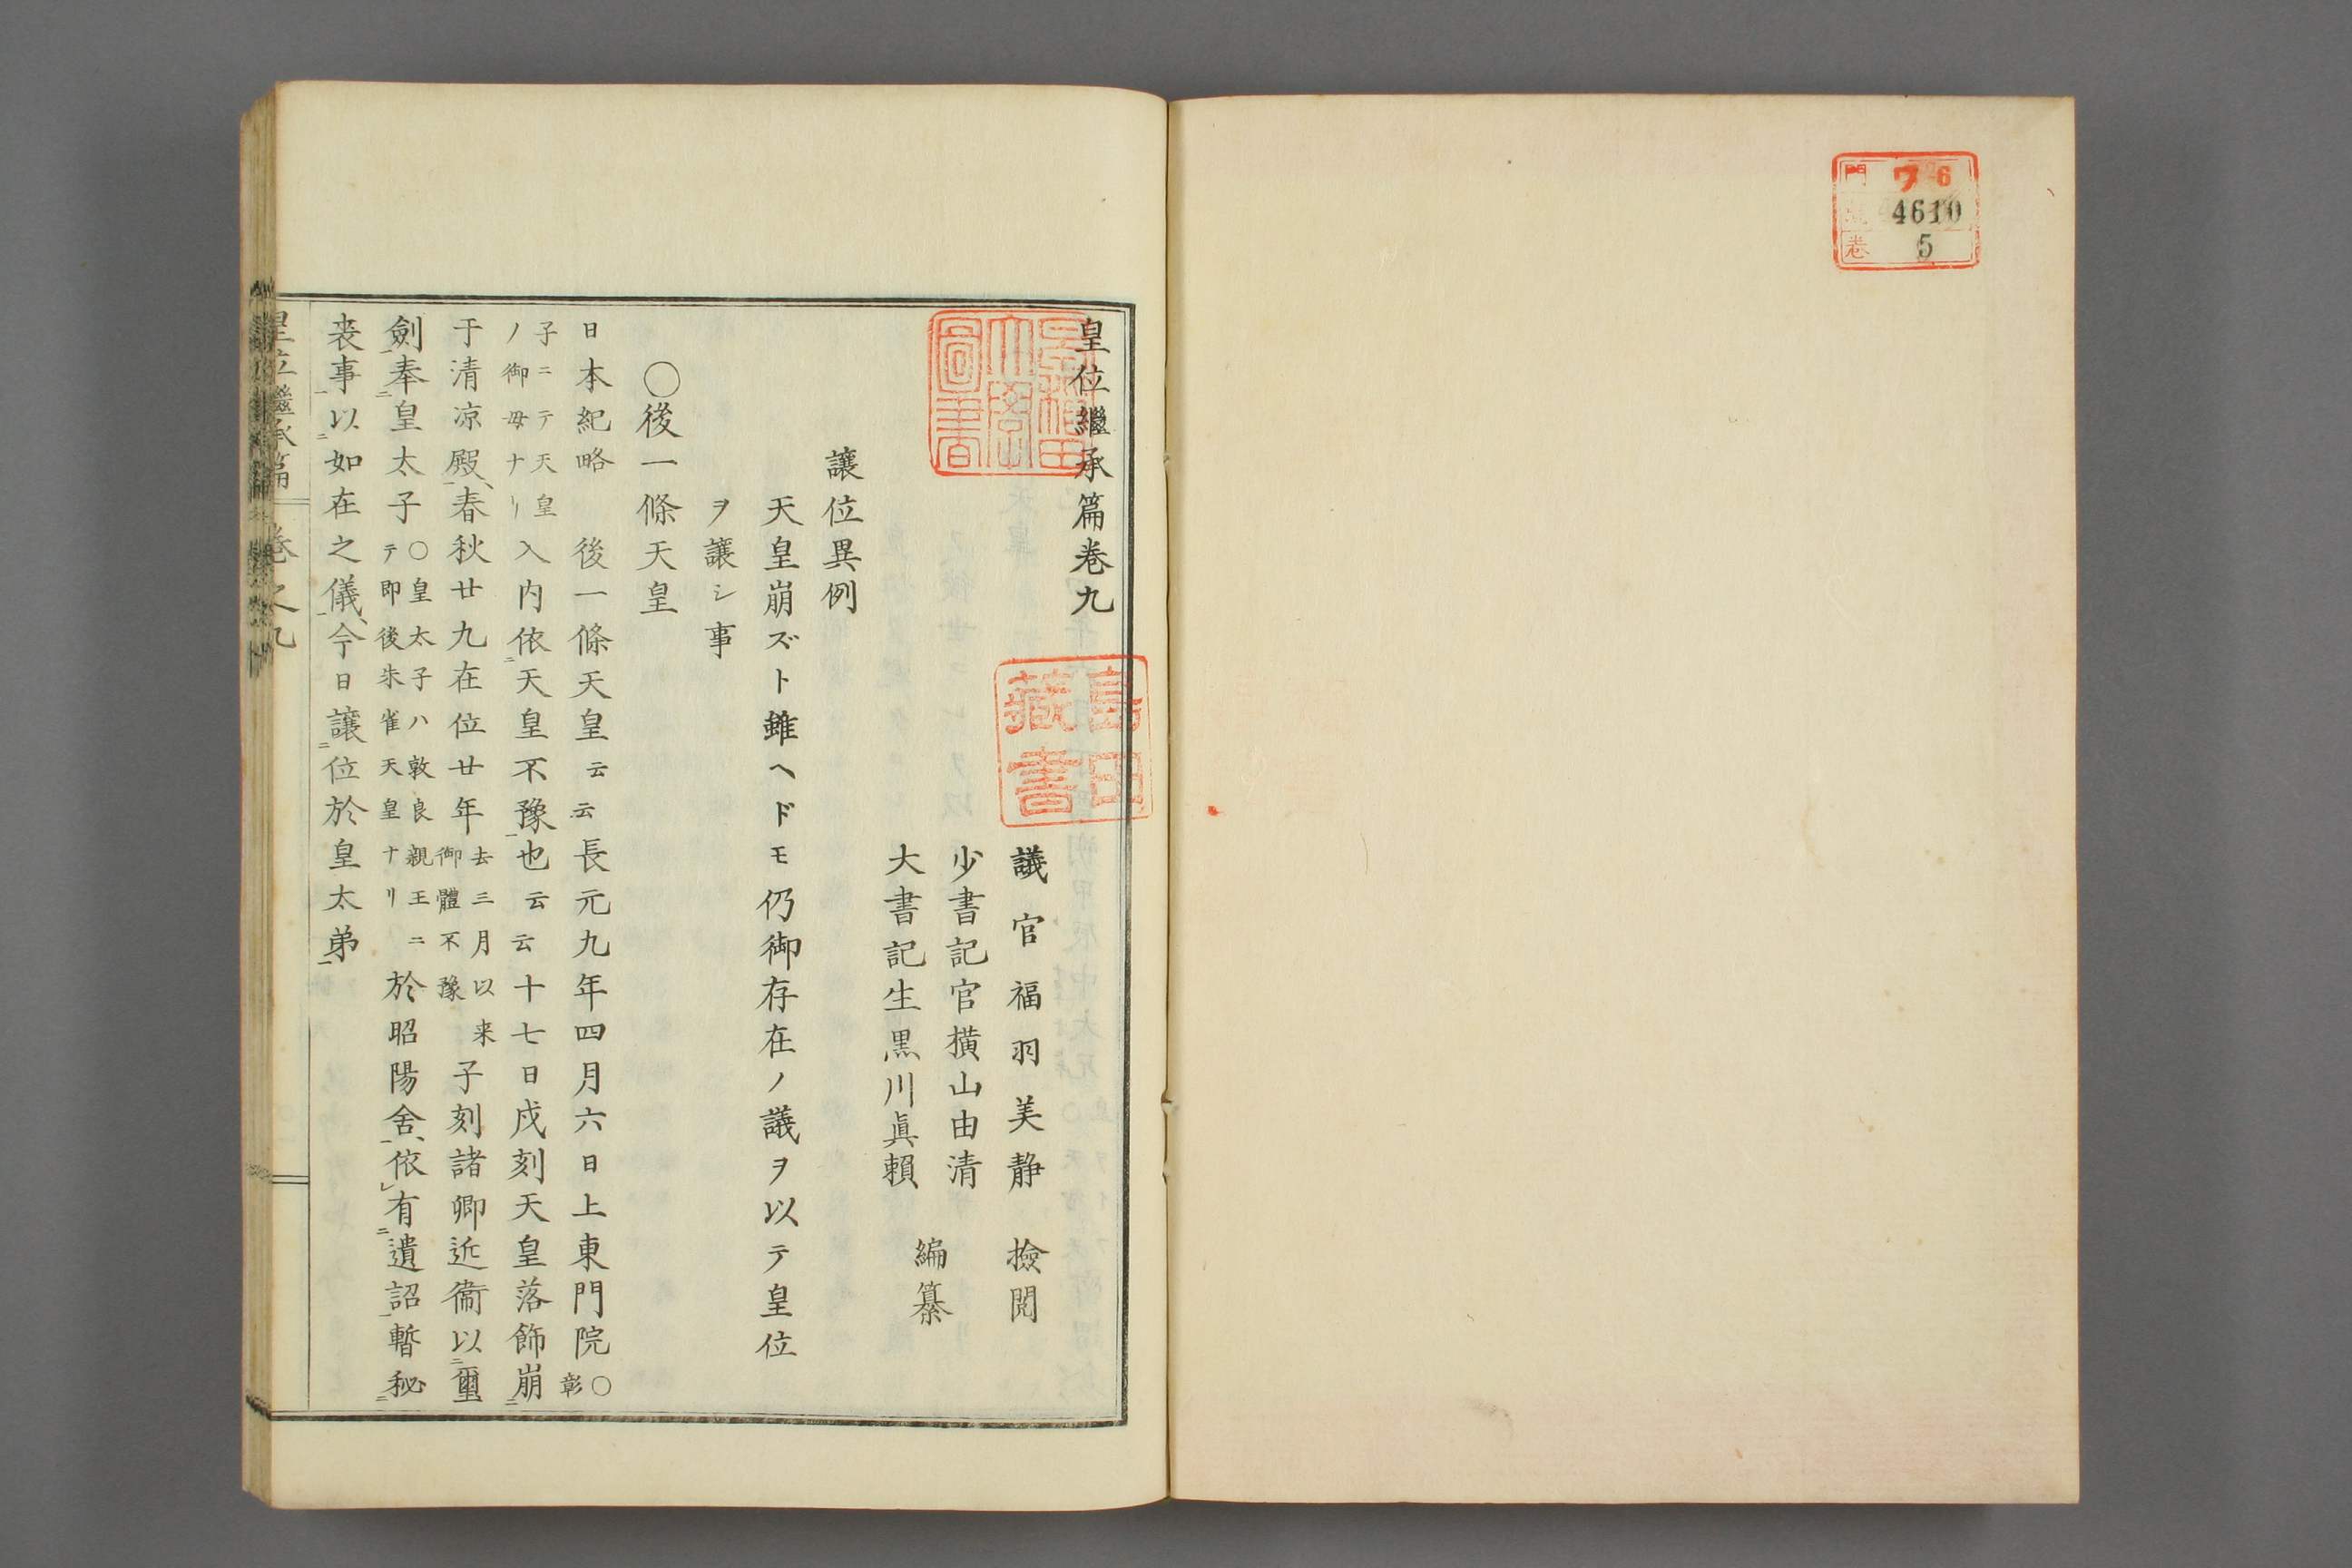 門 ワ 6
號 4610
卷 5
皇位繼承篇卷九
早稻田大學圖書
島田藏書
議官福羽美静 撿閲
少書記官橫山由清
大書記生黒川眞賴
編纂
讓位異例
天皇崩ズト雖ヘドモ仍御存在ノ議ヲ以テ皇位
ヲ讓シ事
○後一條天皇
日本紀略 後一條天皇云云長元九年四月六日上東門院○彰
子ニテ天皇ノ御母ナリ入内依二天皇不豫一也云云十七日戌刻天皇落飾崩二
于清凉殿一、春秋廿九在位廿年去三月以来御體不豫子刻諸卿近衞以二璽
劍一奉二皇太子○皇太子ハ敦良親王ニテ即後朱雀天皇ナリ於昭陽舍一、依レ有二遺詔一暫秘二
丧事一以二如在之儀一、今日讓二位於皇太弟一
皇位繼承篇 卷之九